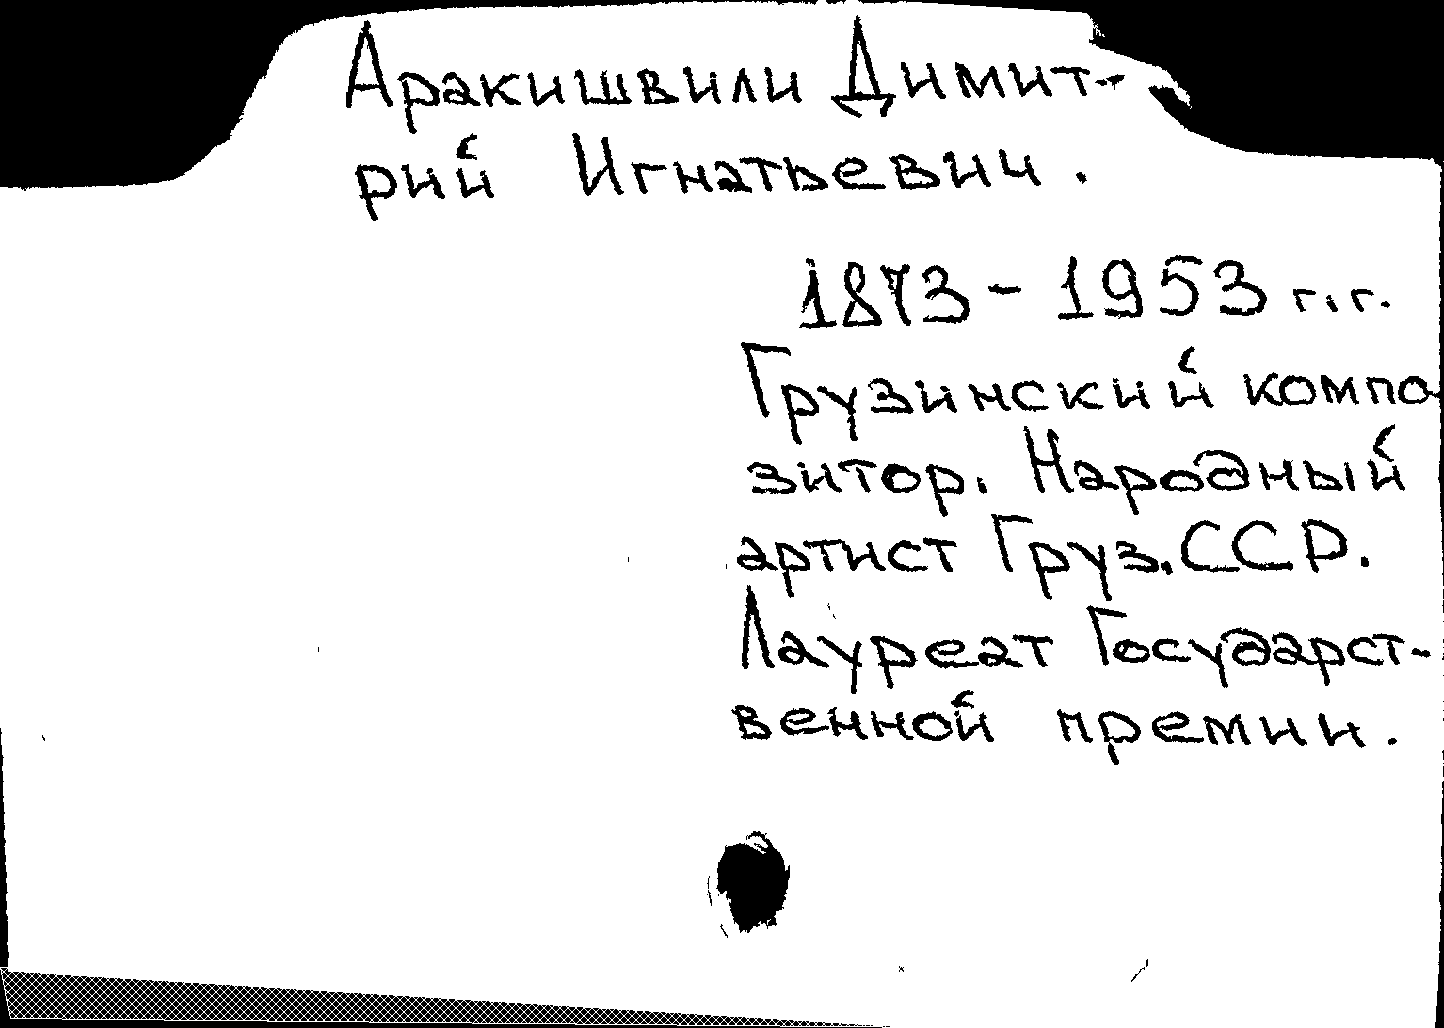 Аракишвили Димит-
рий Игнатьевич.
1873 - 1953 г.г.
Грузинский компо
зитор. Народный
артист Груз.ССР.
Лауреат Государст-
венной премии.